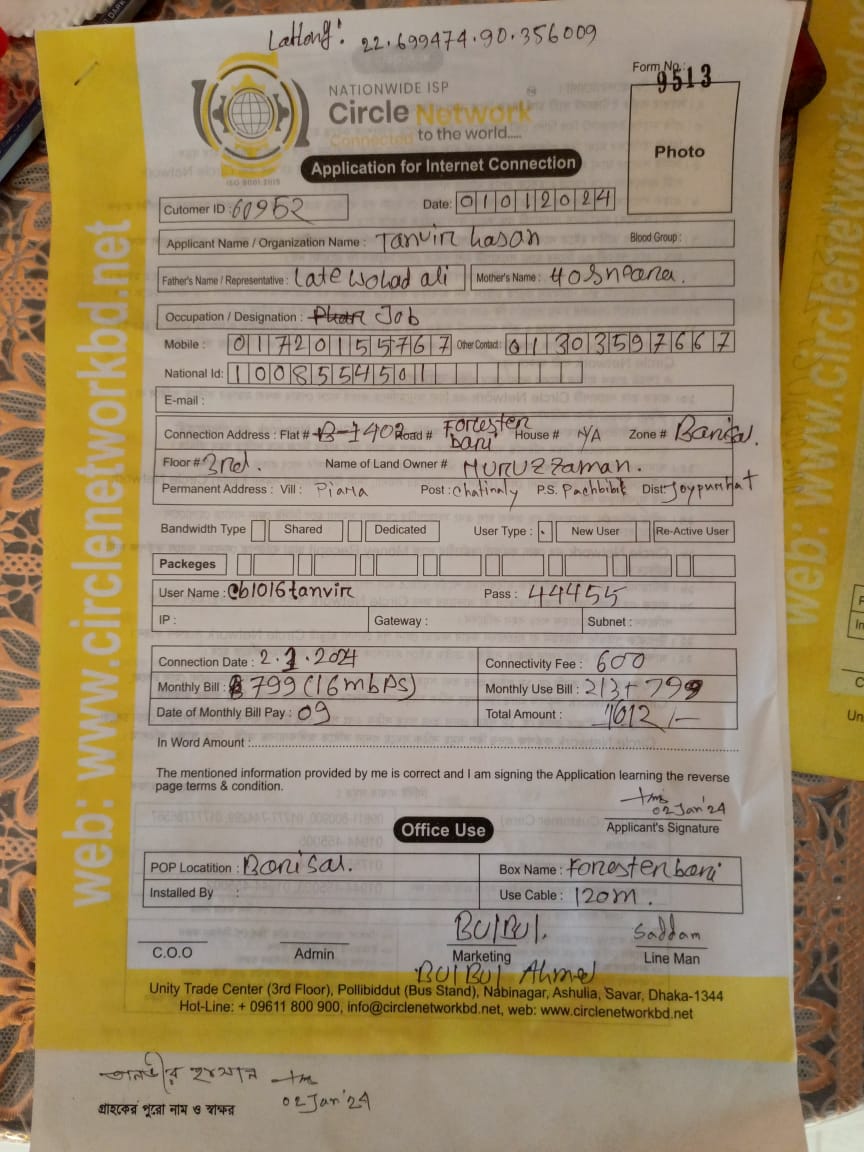 Latlong: 22.699474.90.356009
Form No.: 9513
NATIONWIDE ISP
Circle Network
Connected to the world.....
ISO 9001:2015
Application for Internet Connection
Photo
Cutomer ID : 60952 Date: 01012024
Applicant Name / Organization Name : Tanvir hasan Blood Group :
Father's Name / Representative : Late wohad ali Mother's Name : Hosneara.
Occupation / Designation : Job
Mobile : 01720155767 Other Contact: 01303597667
National Id: 1008554501
E-mail :
Connection Address : Flat # B-1402 Road # Forester bari House # N/A Zone # Barisal.
Floor # 3rd. Name of Land Owner # Nuruzzaman.
Permanent Address : Vill : Piara Post : Chatinaly P.S. Pachbibi Dist: Joypurhat
Bandwidth Type Shared Dedicated User Type : New User Re-Active User
Packeges
User Name : cb1016tanvir Pass : 44455
IP : Gateway : Subnet :
Connection Date : 2.1.2024 Connectivity Fee : 600
Monthly Bill : 799 (16mbps) Monthly Use Bill : 213+799
Date of Monthly Bill Pay : 09 Total Amount : 1612/-
In Word Amount :
The mentioned information provided by me is correct and I am signing the Application learning the reverse
page terms & condition.
02Jan'24
Applicant's Signature
Office Use
POP Locatition : Barisal. Box Name : Forester bari
Installed By : Use Cable : 120m.
BulBul. Saddam
C.O.O Admin Marketing Line Man
BulBul Ahmed
Unity Trade Center (3rd Floor), Pollibiddut (Bus Stand), Nabinagar, Ashulia, Savar, Dhaka-1344
Hot-Line: + 09611 800 900, info@circlenetworkbd.net, web: www.circlenetworkbd.net
তানভীর হাসান
02Jan'24
গ্রাহকের পুরো নাম ও স্বাক্ষর
web: www.circlenetworkbd.net
web: www.circlenetworkbd.net